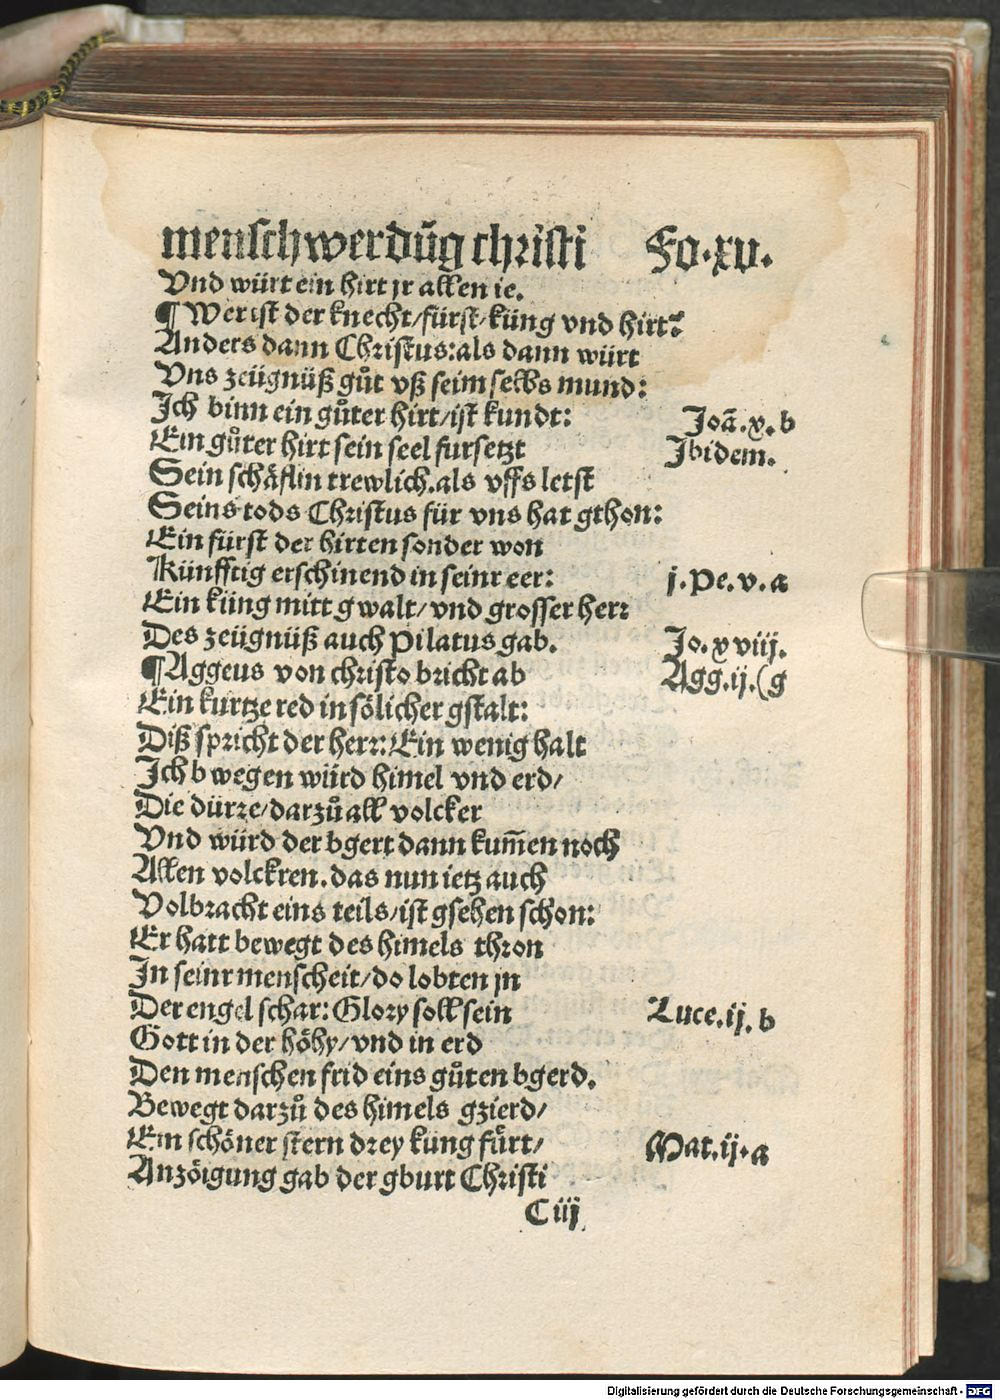 menschwerdūg christi Fo.xv.
Vnd würt ein hirt jr allen ie.
¶ Wer ist der knecht/fürst/küng vnd hirt?
Anders dann Christus:als dann würt
Vns zeügnüß gůt vß seim selbs mund:
Ich binn ein gůter hirt/ist kundt: Joā.x.b
Ein gůter hirt sein seel fursetzt Jbidem.
Sein schäflin trewlich.als vffs letst
Seins tods Christus für vns hat gthon:
Ein fürst der hirten sonder won
Künfftig erschinend in seinr eer: j.Pe.v.a
Ein küng mitt gwalt/vnd grosser herr
Des zeügnüß auch Pilatus gab. Jo.xviij.
¶Aggeus von christo bricht ab Agg.ij.(g
Ein kurtze red in sölicher gstalt:
Diß spricht der herr:Ein wenig halt
Ich bwegen würd himel vnd erd/
Die dürre/darzů all volcker
Vnd würd der bgert dann kum̄en noch
Allen volckren.das nun ietz auch
Volbracht eins teils/ist gsehen schon:
Er hatt bewegt des himels thron
In seinr menscheit/do lobten jn
Der engel schar:Glory soll sein Luce.ij.b
Gott in der höhy/vnd in erd
Den menschen frid eins gůten bgerd.
Bewegt darzů des himels gzierd/
Ein schöner stern drey kung fůrt/ Mat.ij.a
Anzöigung gab der gburt Christi
C iij
Digitalisierung gefördert durch die Deutsche Forschungsgemeinschaft - DFG